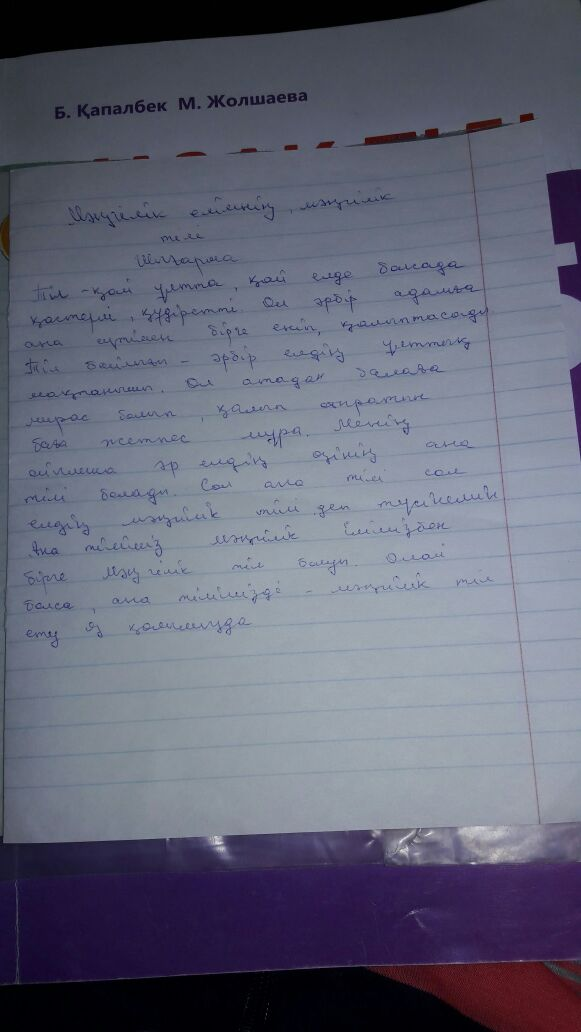 Б. Қапалбек М. Жолшаева
Мәңгілік елімнің, мәңгілік
тілі
Шығарма
Тіл - қай ұлтта, қай елде болсада
қастерлі, құдіретті. Ол әрбір адамға
ана сүтімен бірге еніп, қалыптасады.
Тіл байлығы - әрбір елдің ұлттық
мақтанышы. Ол атадан балаға
мирас болып, қалып отыратын
баға жетпес мұра. Менің
ойымша әр елдің өзінің ана
тілі болады. Сол ана тілі сол
елдің мәңгілік тілі деп түсінемін
Ана тіліміз мәңгілік Елімізбен
бірге Мәңгілік тіл болды. Олай
болса, ана тілімізді - мәңгілік тіл
ету өз қолымызда